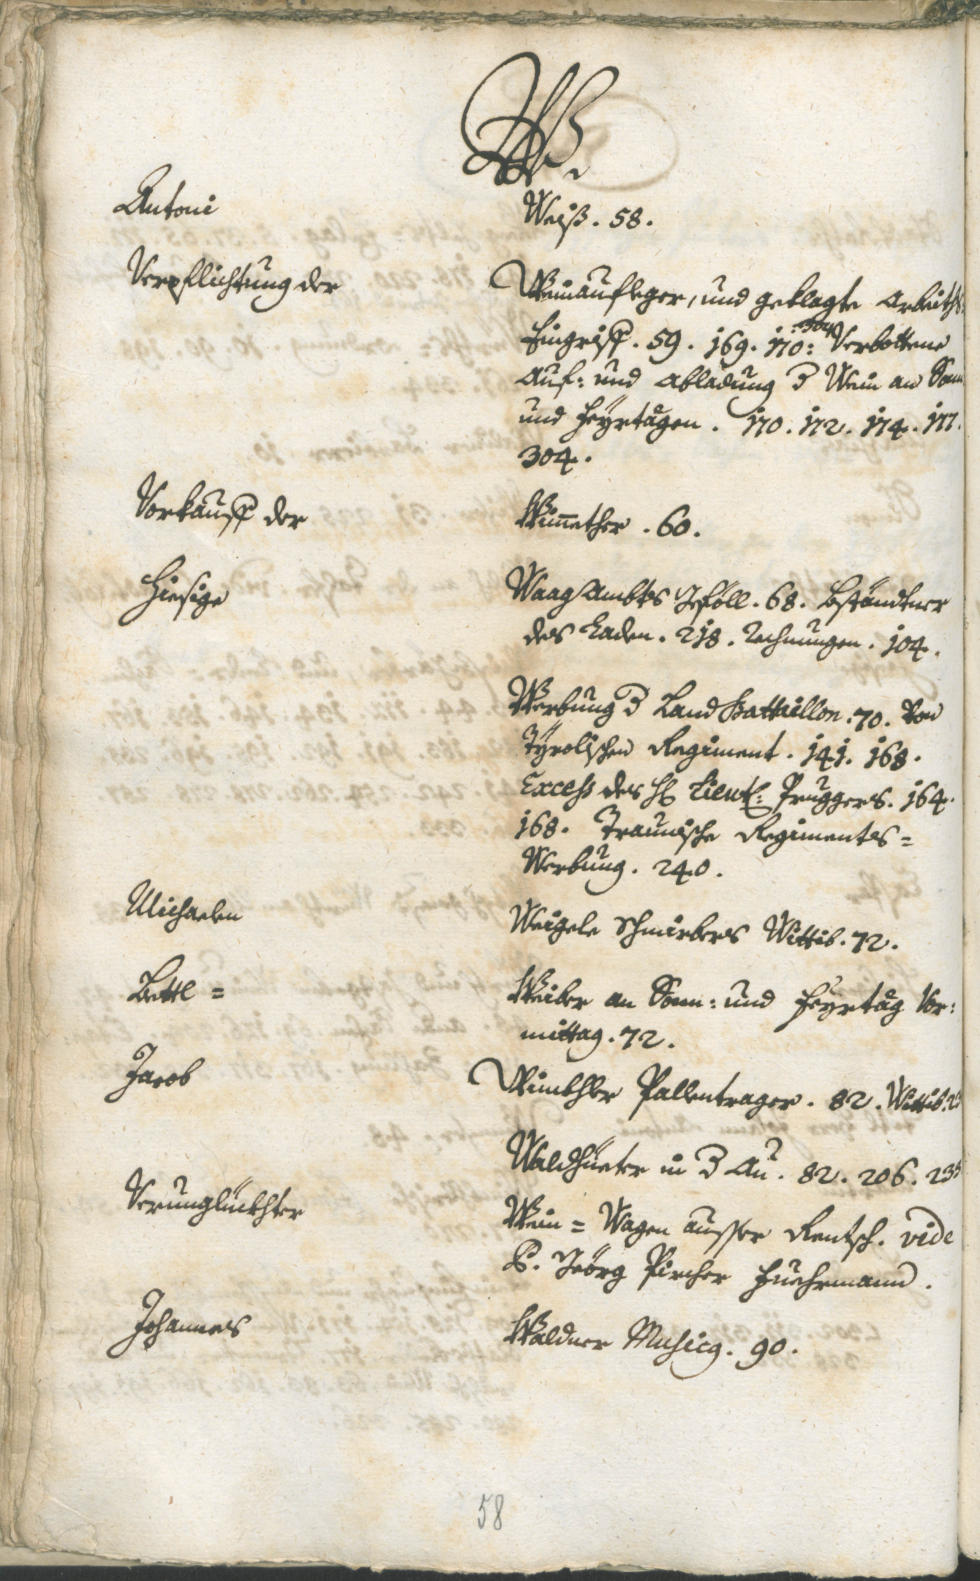 W.
Antoni Weiß. 58.
Verpflichtung der Weinaufleger, und geklagte Arbeiths
Eingriff. 59. 169. 170. 304 Verbottene
Auf: und Abladung d Wein an Son
und Feyrtägen. 170. 172. 174. 177.
304.
Vorkauff der Wimmether. 60.
Hiesige Waag Ambts Gföll. 68. Bständtner
des Laden. 218. Rechnungen. 104.
Werbung d Land Battaillon. 70. Von
Tyrolischen Regiment. 141. 168.
Excess des H Lieut: Pruggers. 164.
168. Traunische Regiments=
Werbung. 240.
Michaelen Weigele Schmirbers Wittib. 72.
Bettl= Weiber an Sonn: und Feyrtäg Vor:
mittag. 72.
Jacob Wimkhler Pallentrager. 82. Wittib.
Waldhüeter in d Au. 82. 206.
Verunglückhter Wein=Wagen ausser Rentsch. vide
P. Geörg Pircher Fuehrmann.
Johannes Waldner Musicq. 90.
58